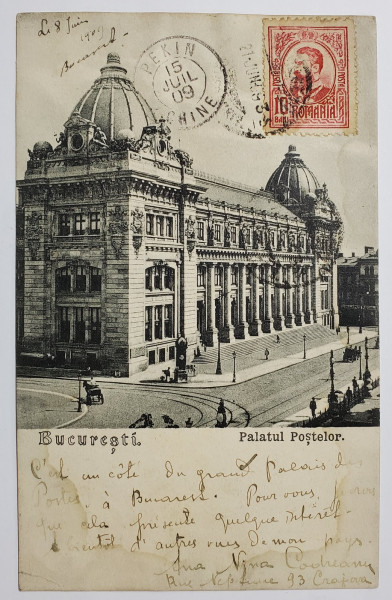 Le 8 Juin 1909
Bucarest
PEKIN
15
JUIL
09
CHINE
10
BANI
ROMANIA
Bucureşti.
Palatul Poştelor.
C'est un côté du grand Palais des
Postes, à Bucarest. Pour vous,
que cela présente quelque intérêt.
à bientôt d'autres vues de mon pays.
Nina Codreanu
Rue Neptune 93 Craiova